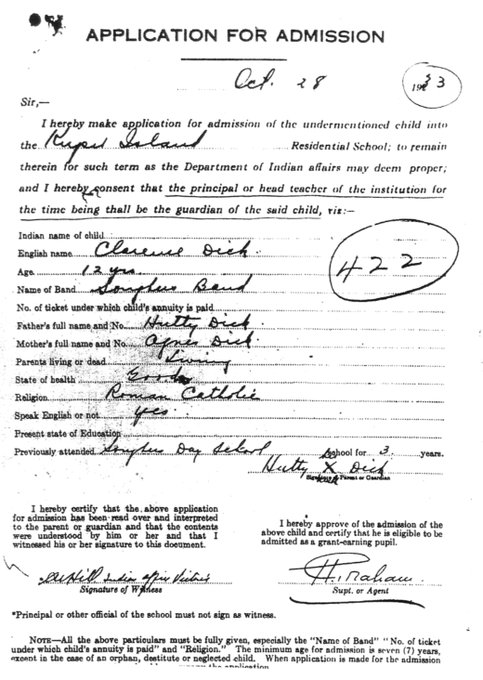 APPLICATION FOR ADMISSION
Oct. 28 1933
Sir,—
I hereby make application for admission of the undermentioned child into
the Kuper Island Residential School; to remain
therein for such term as the Department of Indian affairs may deem proper;
and I hereby consent that the principal or head teacher of the institution for
the time being shall be the guardian of the said child, viz:—
Indian name of child
English name Clarence Dick
Age 12 yrs.
Name of Band Songhees Band
422
No. of ticket under which child's annuity is paid
Father's full name and No. Hutty Dick
Mother's full name and No. Agnes Dick
Parents living or dead Living
State of health Good
Religion Roman Catholic
Speak English or not yes
Present state of Education
Previously attended Songhees Day School School for 3 years.
Hutty X Dick
Signature of Parent or Guardian
I hereby certify that the above application
for admission has been read over and interpreted
to the parent or guardian and that the contents
were understood by him or her and that I
witnessed his or her signature to this document.
I hereby approve of the admission of the
above child and certify that he is eligible to be
admitted as a grant-earning pupil.
Hill Indian Office Victoria
Signature of Witness
H. Graham
Supt. or Agent
*Principal or other official of the school must not sign as witness.
NOTE—All the above particulars must be fully given, especially the "Name of Band" "No. of ticket
under which child's annuity is paid" and "Religion." The minimum age for admission is seven (7) years,
except in the case of an orphan, destitute or neglected child. When application is made for the admission